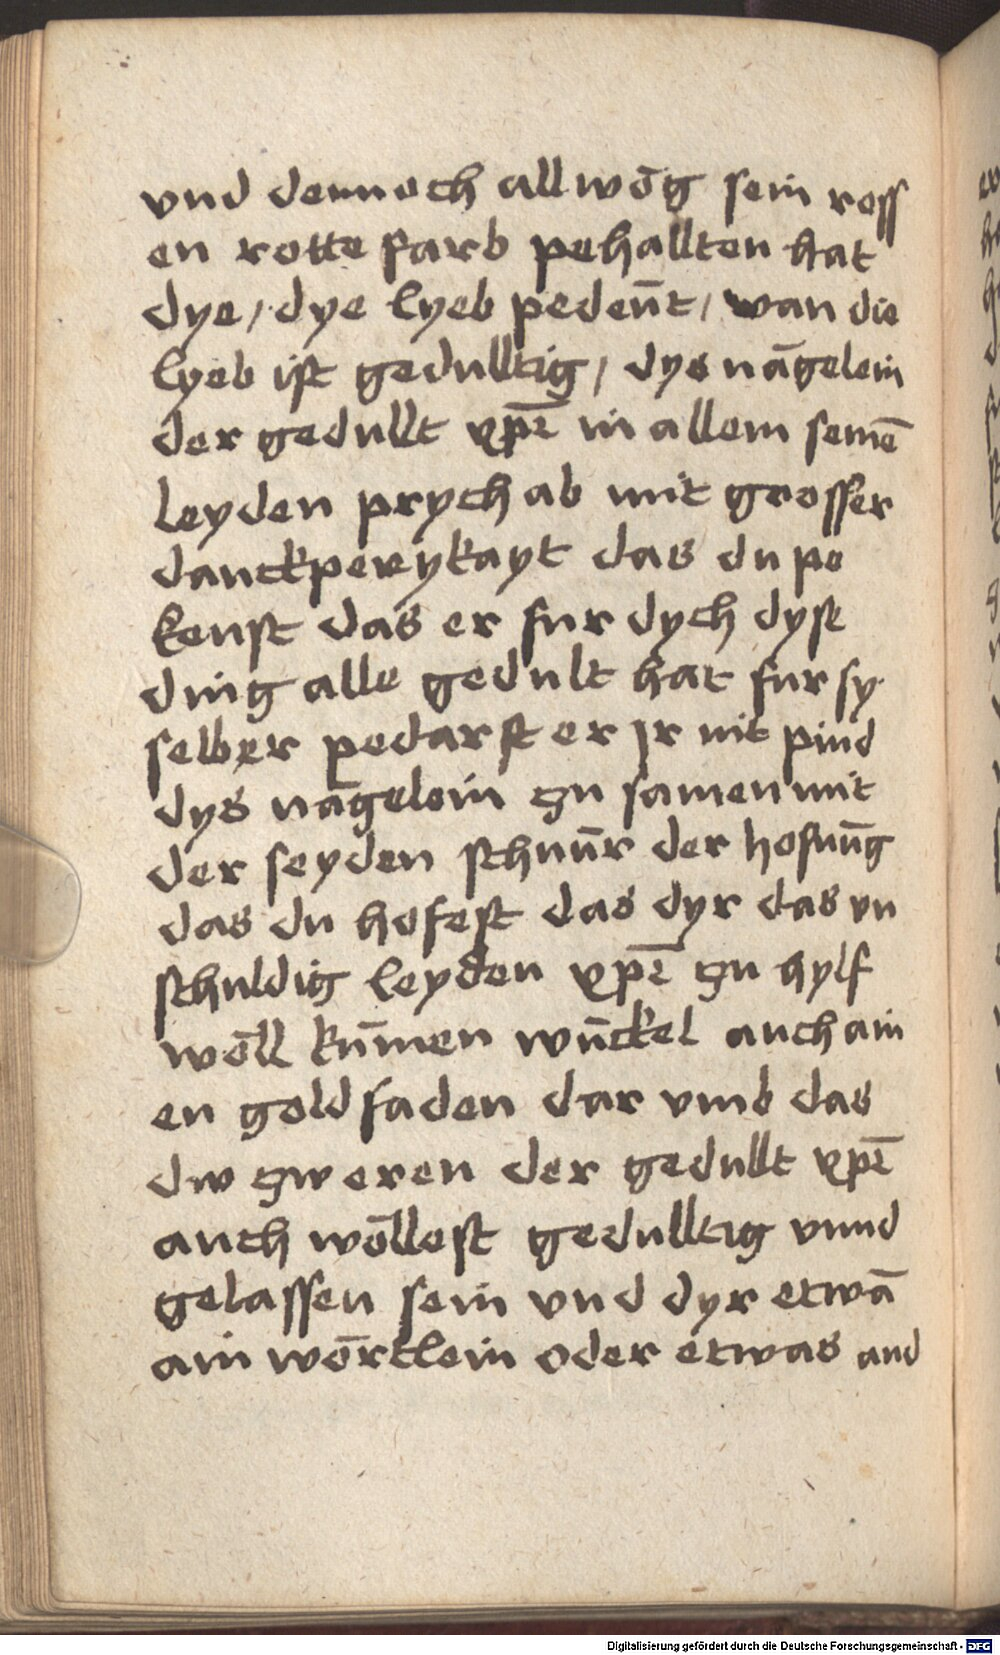 vnd dennoch allwo̅g sein ross
en rotte farb pehallten hat
dye / dye lyeb pedeu̅t / wan die
lyeb ist gedulltig / dys na̅gelein
der gedullt xp̅i in allem seine̅
leyden prych ab mit grosser
danckperykayt das du pe
kenst das er fur dych dyse
ding alle gedult hat fur sy
selber pedarft er jr nit pind
dys na̅gelein zu samen mit
der seyden schnu̅r der hofnu̅g
das du hofest das dyr das vn
schuldig leyden xp̅i zu hylf
wo̅ll ku̅men wu̅ckel auch ain
en gold faden dar vmb das
dw zw eren der gedullt xp̅i
auch wo̅llest gedulltig vnnd
gelassen sein vnd dyr etwa̅
ain wo̅rtlein oder etwas and
Digitalisierung gefördert durch die Deutsche Forschungsgemeinschaft - DFG